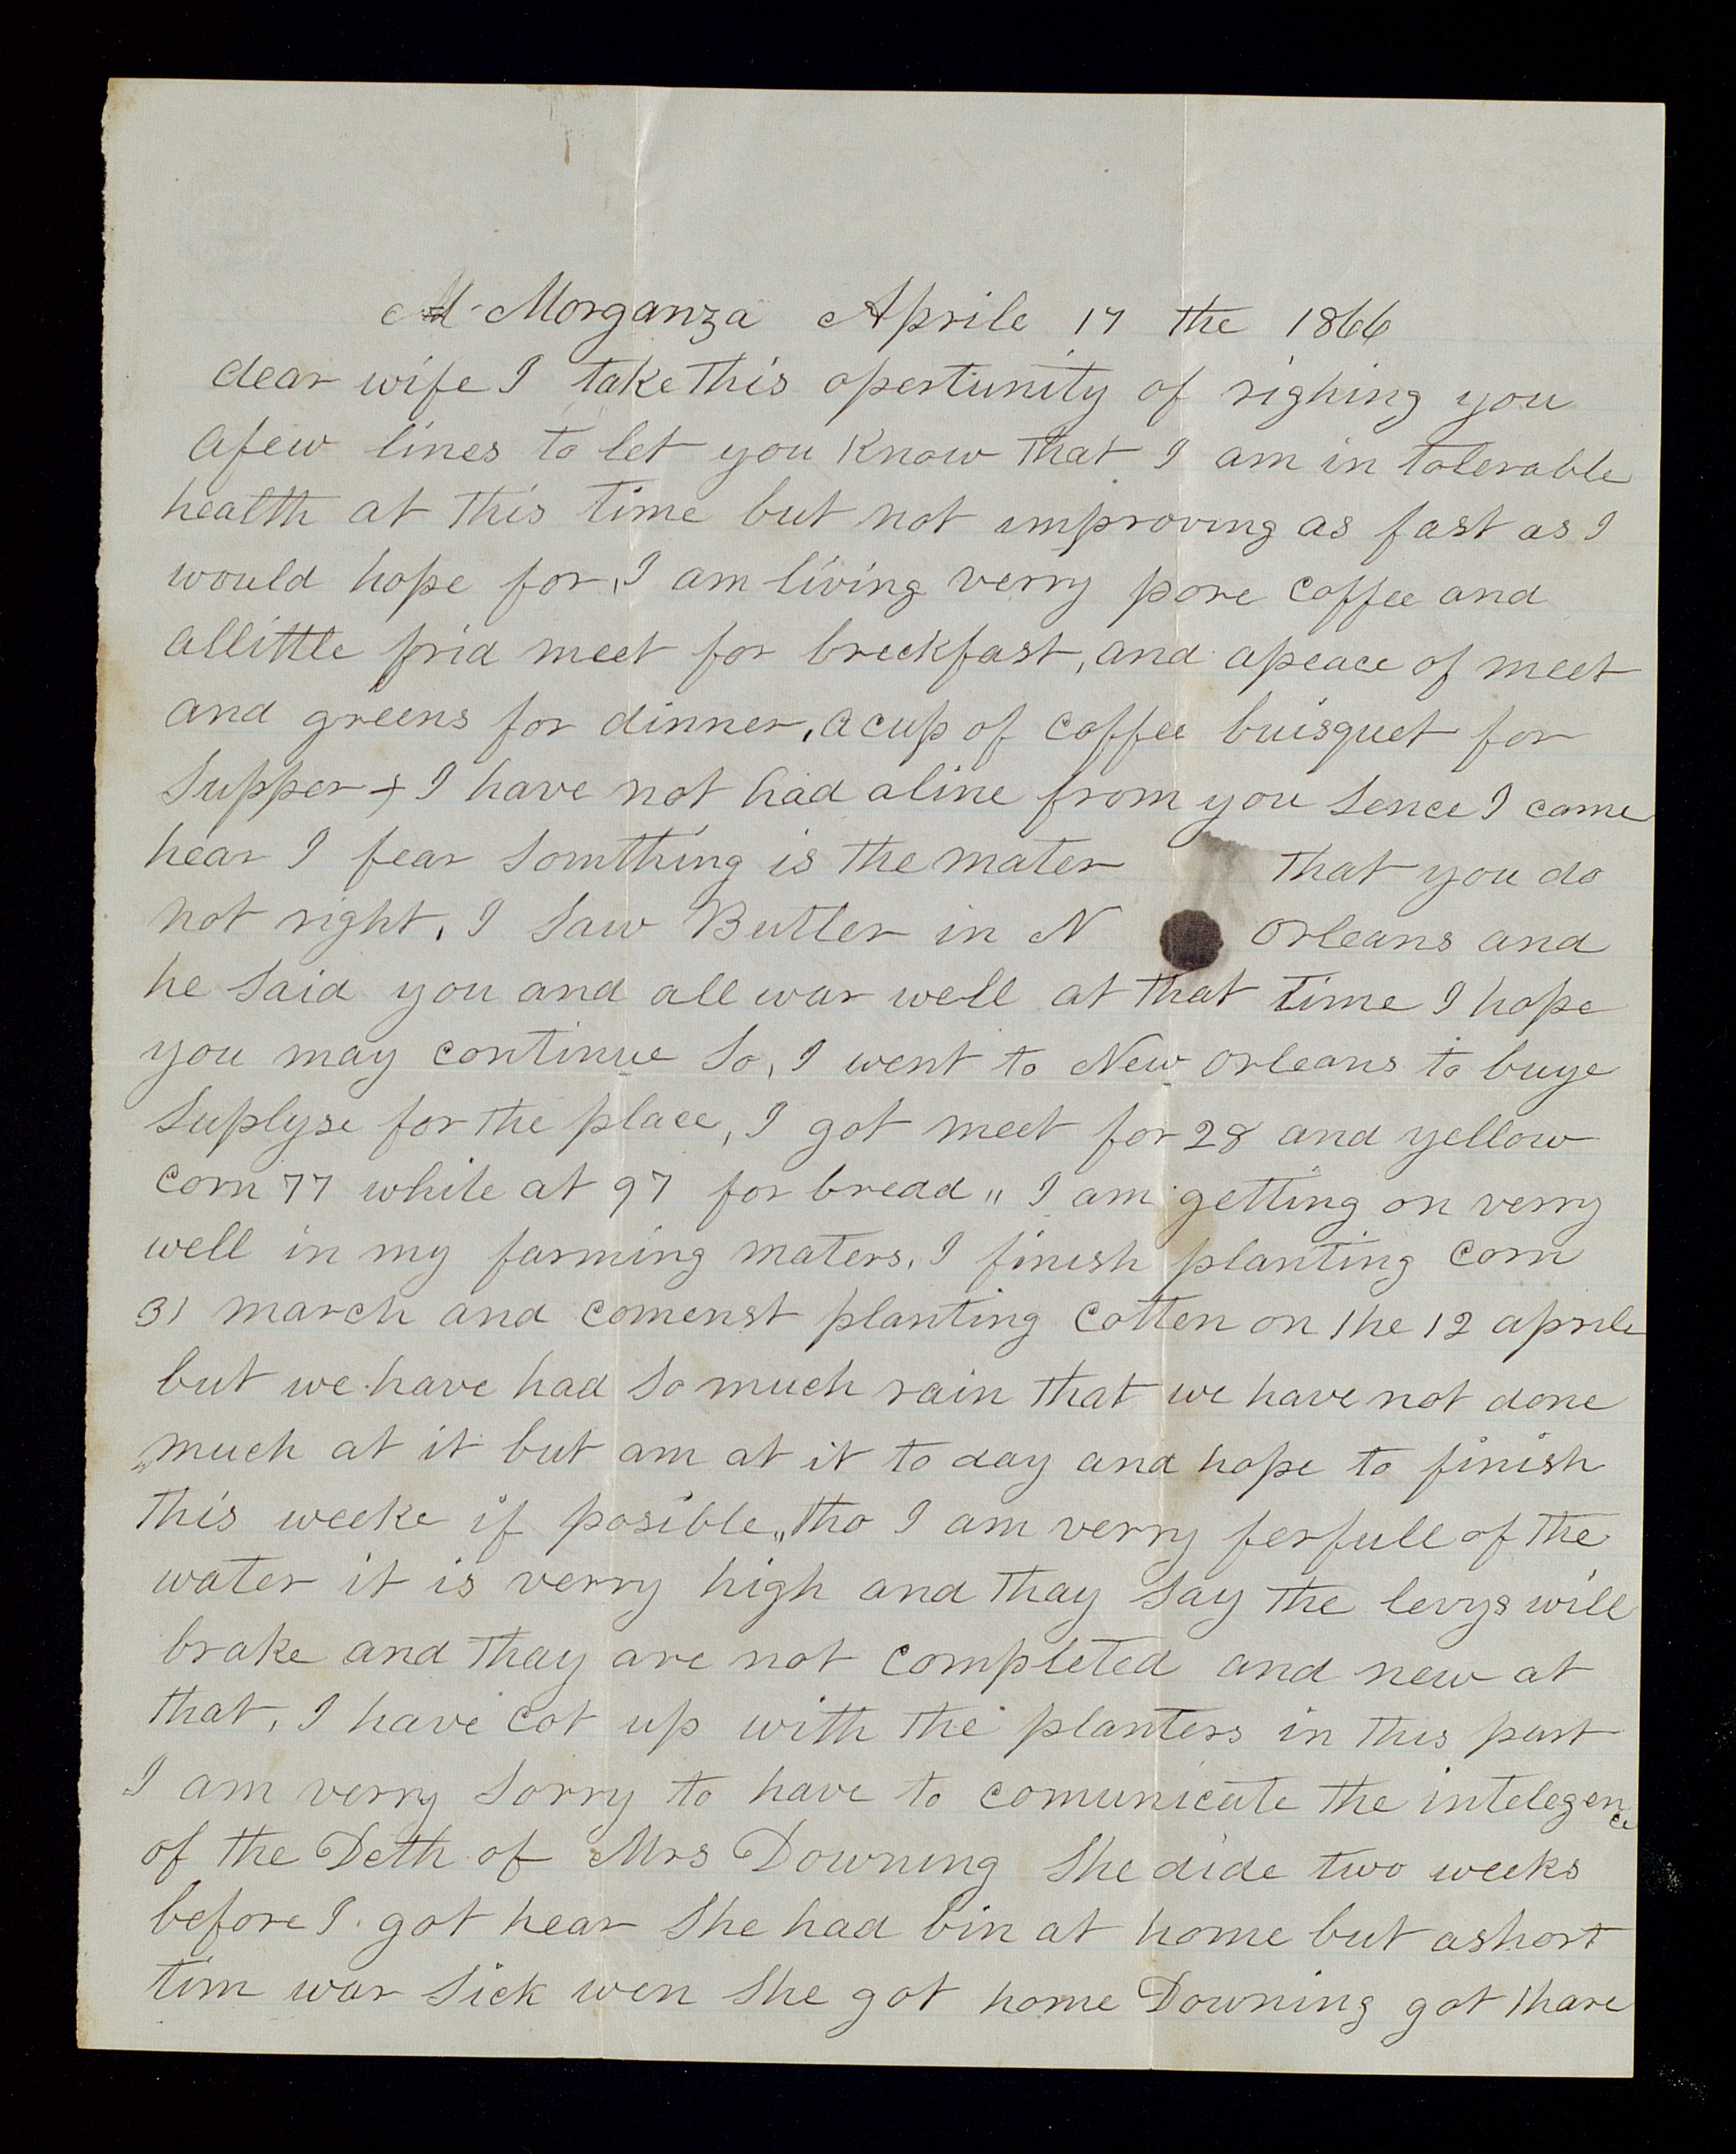 Morganza Aprile 17 the 1866
dear wife I take this opertunity of righing you
afew lines to let you Know that I am in tolerable
health at this time but not improving as fast as I
would hope for, I am living verry pore coffee and
allittle frid meet for breckfast, and apeace of meet
and greens for dinner, a cup of coffee buisquet for
Supper + I have not had aline from you Sence I came
hear I fear Somthing is the mater that you do
not right, I Saw Butler in N Orleans and
he Said you and all war well at that time I hope
you may continue So, I went to New Orleans to buye
Suplyse for the place, I got meet for 28 and yellow
corn 77 white at 97 for bread " I am getting on verry
well in my farming maters, I finish planting corn
31 march and comenst planting cotten on the 12 aprile
but we have had So much rain that we have not done
much at it but am at it to day and hope to finish
this weeke if posible " tho I am verry ferfull of the
water it is verry high and thay Say the levys will
brake and thay are not completed and new at
that, I have cot up with the planters in this part
I am verry Sorry to have to comunicate the intelegence
of the Deth of Mrs Downing She dide two weeks
before I got hear She had bin at home but ashort
tim war Sick wen She got home Downing got thare